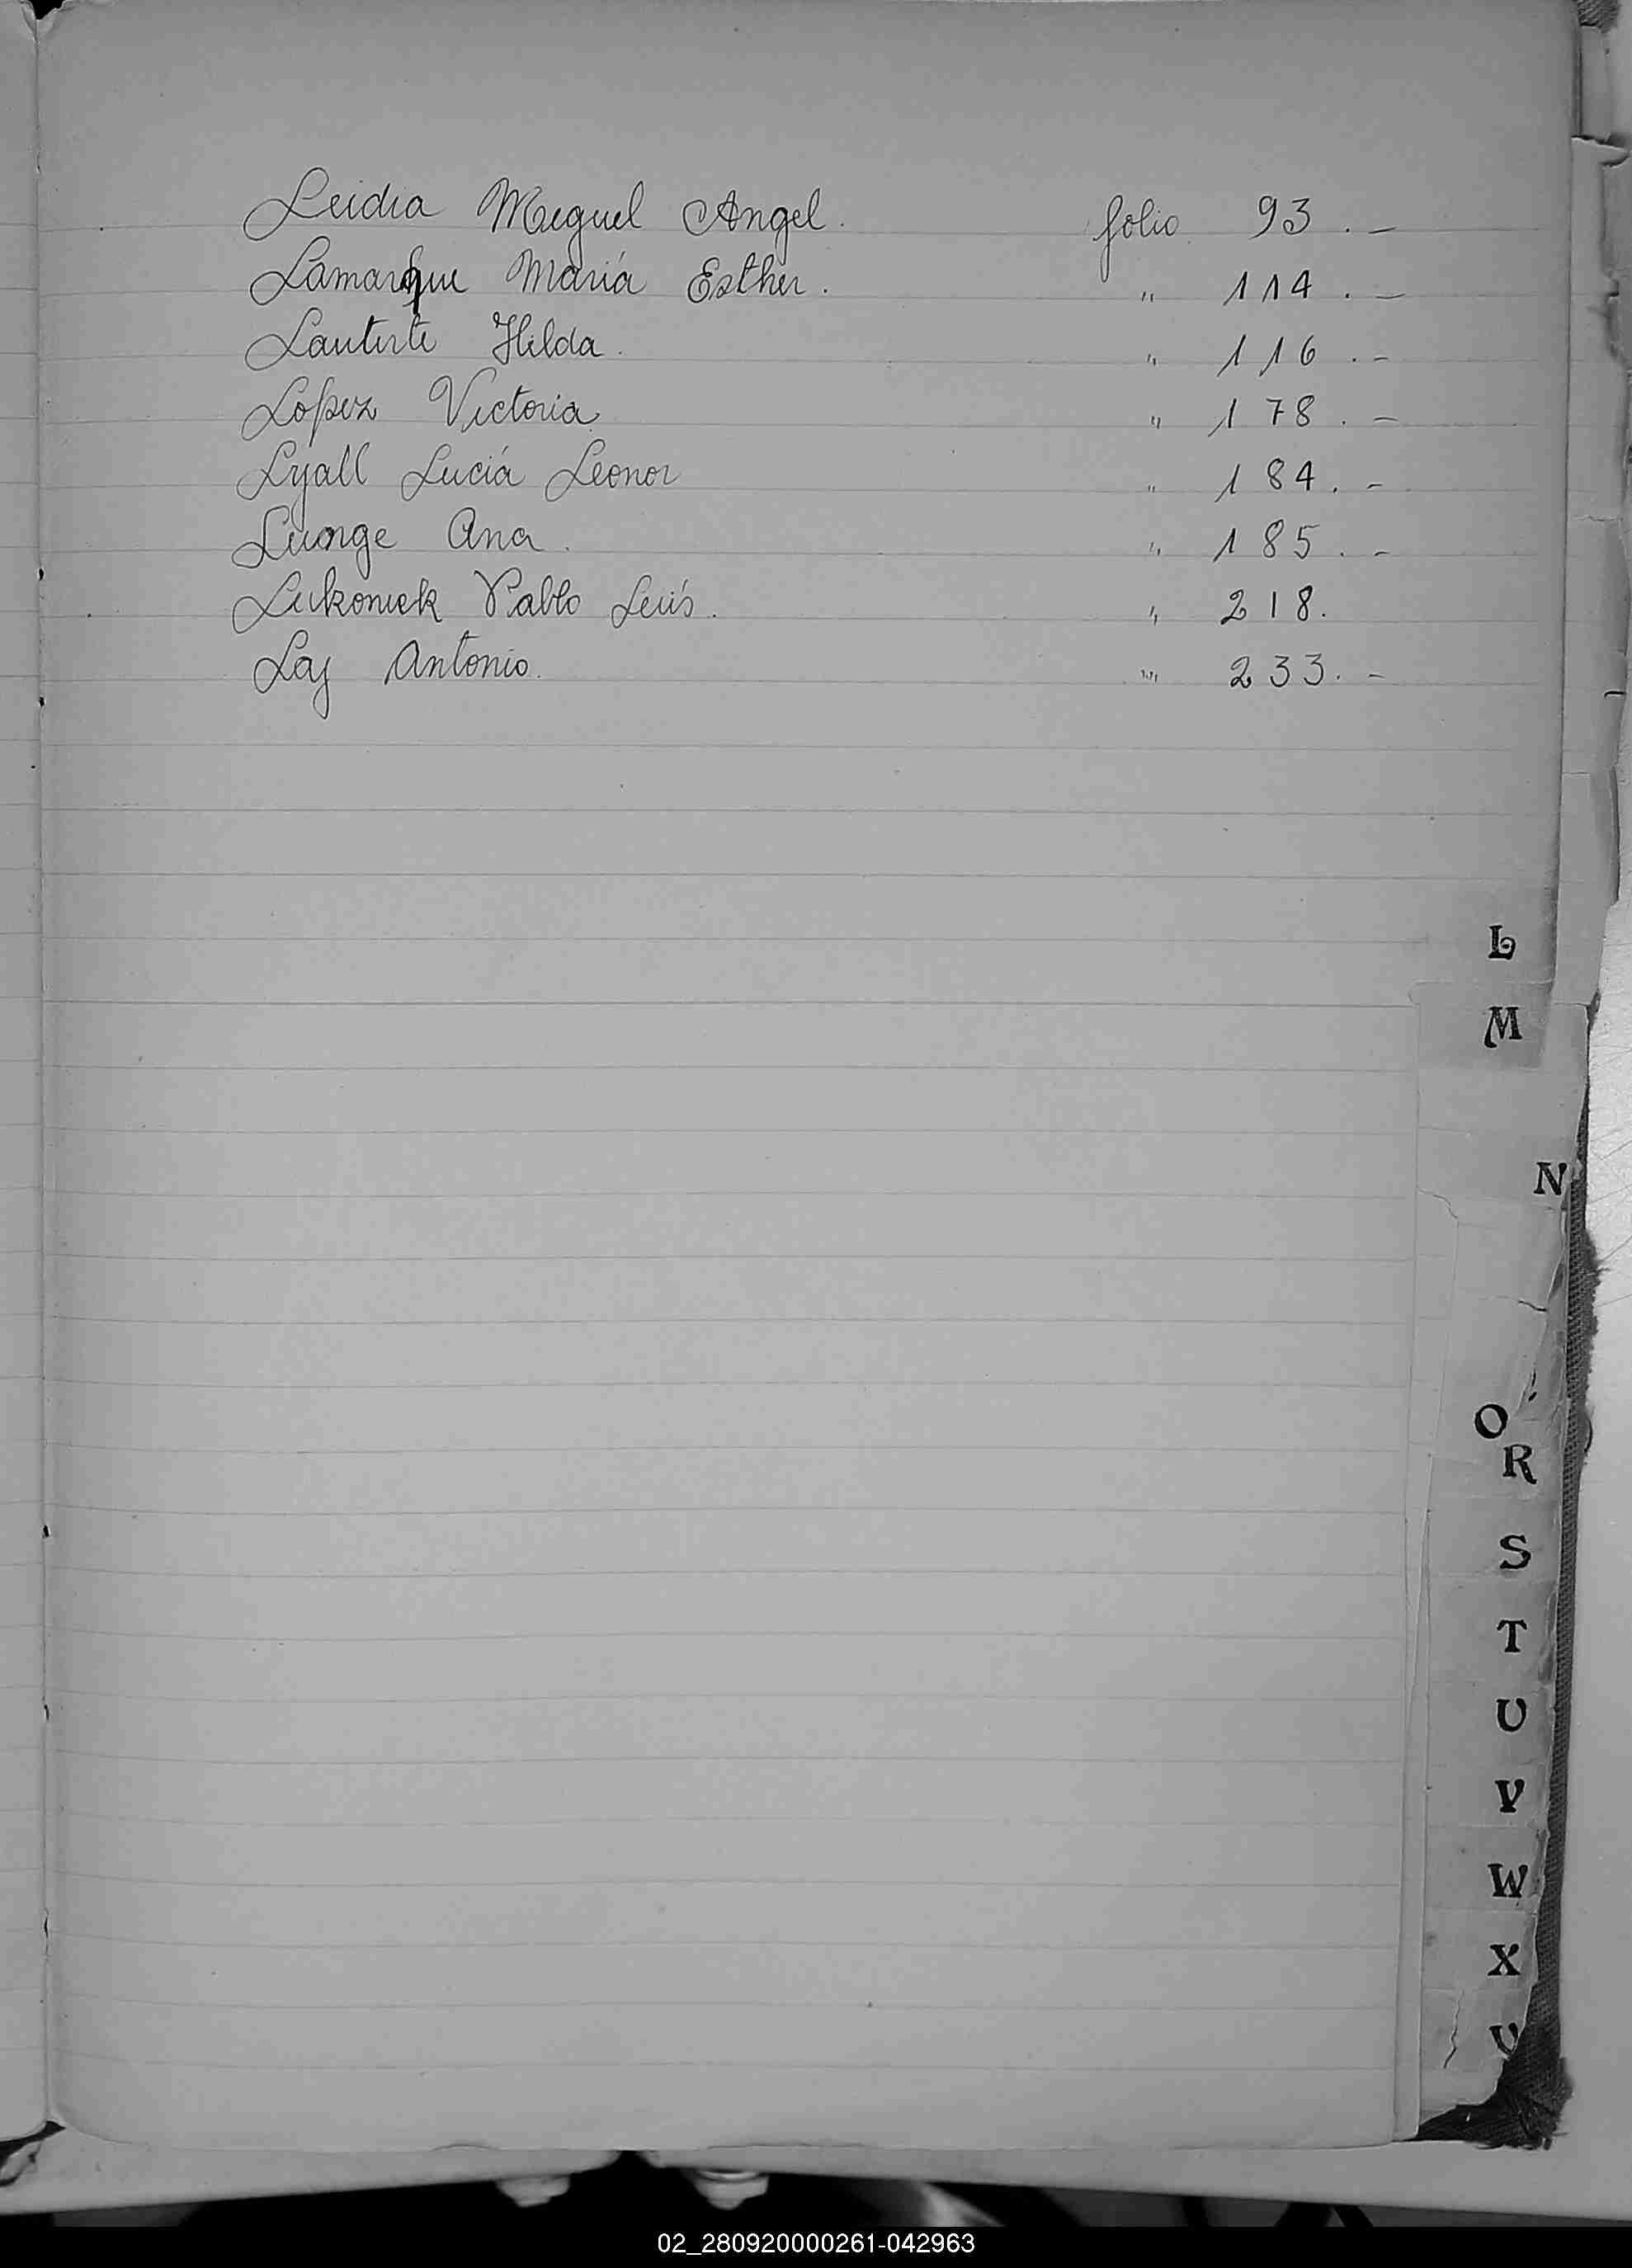 Leidia Miguel Angel. folio 93.-
Lamarque María Esther. " 114.-
Hilda. " 116.-
Lopez Victoria " 178.-
Lyall Lucía Leonor " 184.-
Ana. " 185.-
Pablo Luís. " 218.
Loy Antonio. " 233.-
L
M
N
O
R
S
T
U
V
W
X
02_280920000261-042963